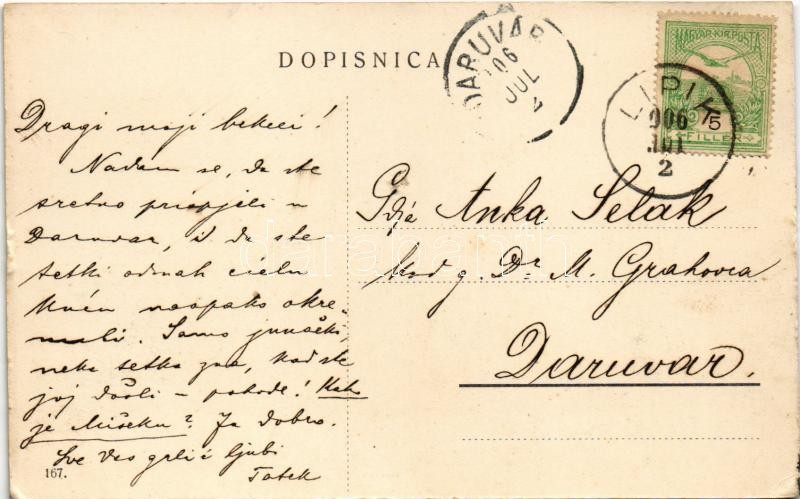 DOPISNICA
DARUVAR
906
JUL
2
MAGYAR KIR. POSTA
5
FILLÉR
LIPIK
906
JUL
2
Dragi moji bekeci!
Nadam se, da ste
sretno prispjeli u
Daruvar, i da ste
tetki odmah cielu
kuću naopako okre-
nuli. Samo junački,
neka tetka zna, kad ste
joj došli – pohode! Kako
je Mišeku? Ja dobro.
Sve Vas grli i ljubi
Tatek
Gdja Anka Selak
kod g. Dr. M. Grahovca
Daruvar.
167.
darabanth